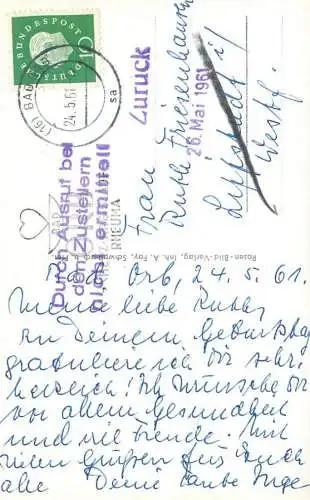 DEUTSCHE
BUNDESPOST
10
(16) BAD ORB
24.5.61
sa
BAD
ORB
RHEUMA
Zurück
26. Mai 1961
Durch Ausruf bei
den Zustellern
nicht ermittelt
Frau
Ruth Friesenhausen
Lippstadt i/
Westf.
Rosen-Bild-Verlag, Inh. A. Fay,
Bad Orb, 24.5.61.
Meine liebe Ruth,
zu Deinem Geburtstag
gratuliere ich Dir sehr
herzlich! Ich wünsche Dir
vor allem Gesundheit
und viel Freude. Mit
vielen Grüßen für Euch
alle Deine Tante Inge